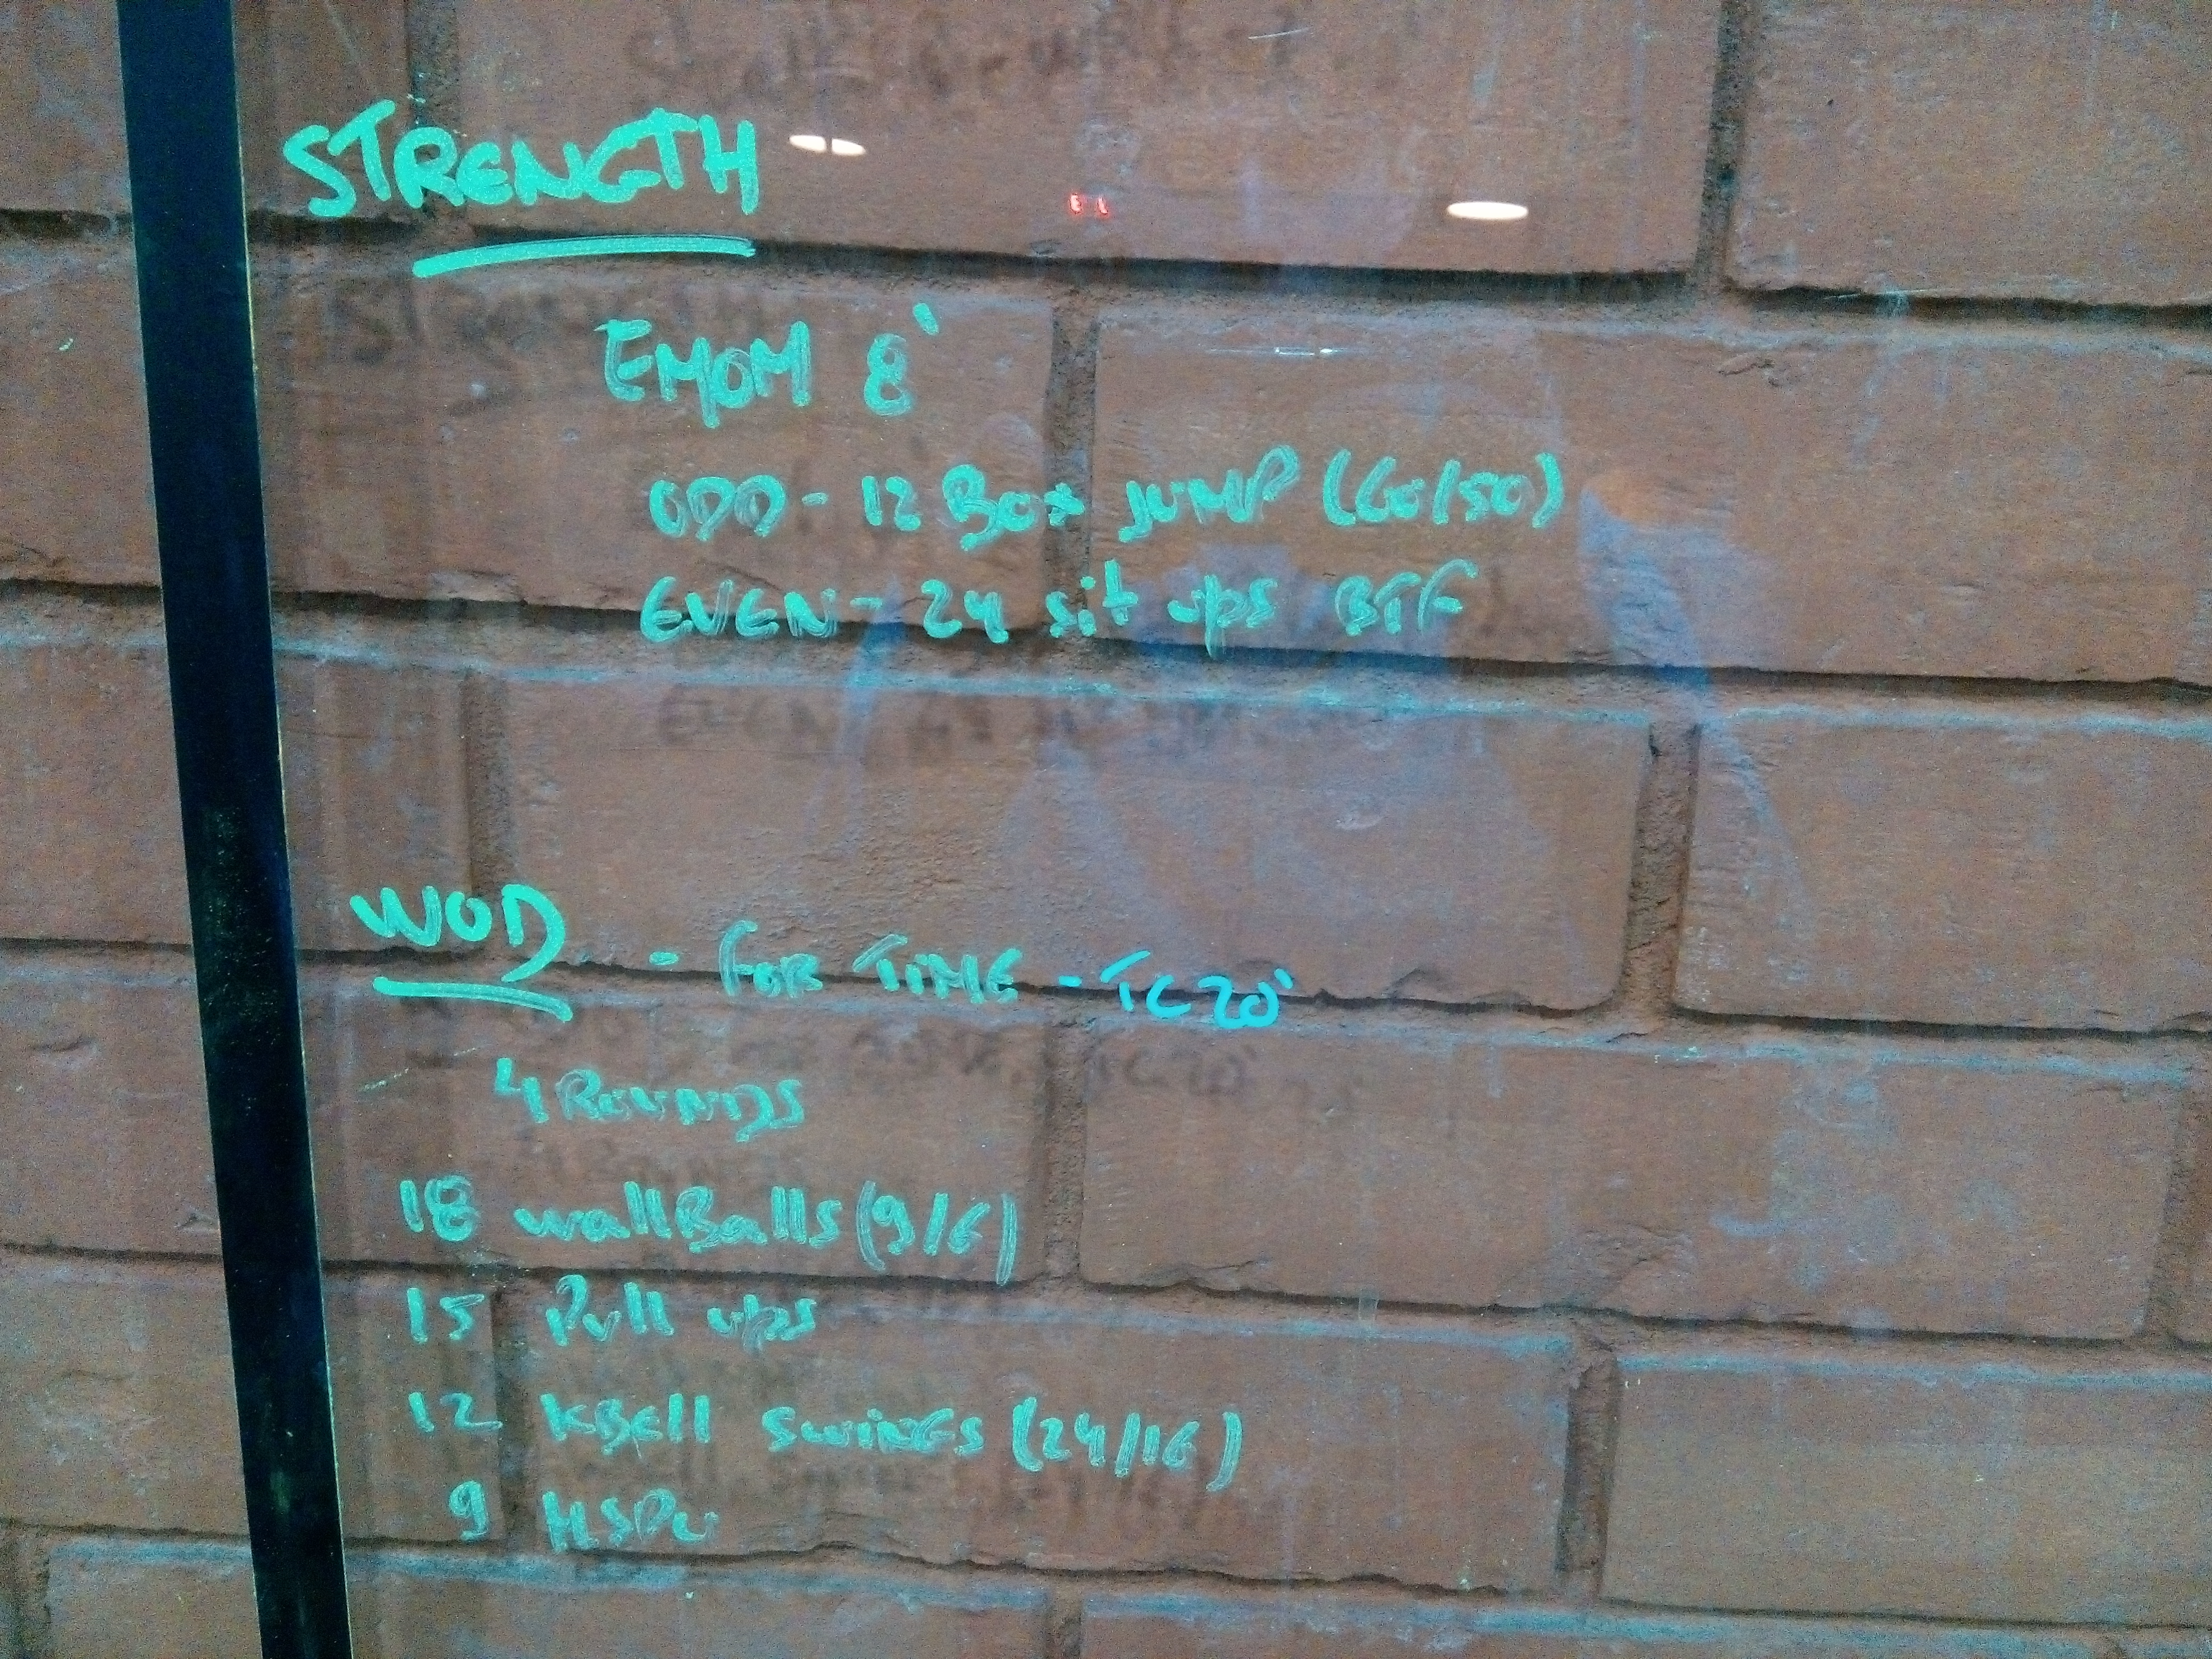 STRENGTH
EMOM 8'
ODD - 12 Box JUMP (60/50)
EVEN - 24 sit ups BTF
WOD - FOR TIME - TC 20'
4 ROUNDS
18 wallBalls (9/6)
15 Pull ups
12 KBell SwiNGS (24/16)
9 HSPU